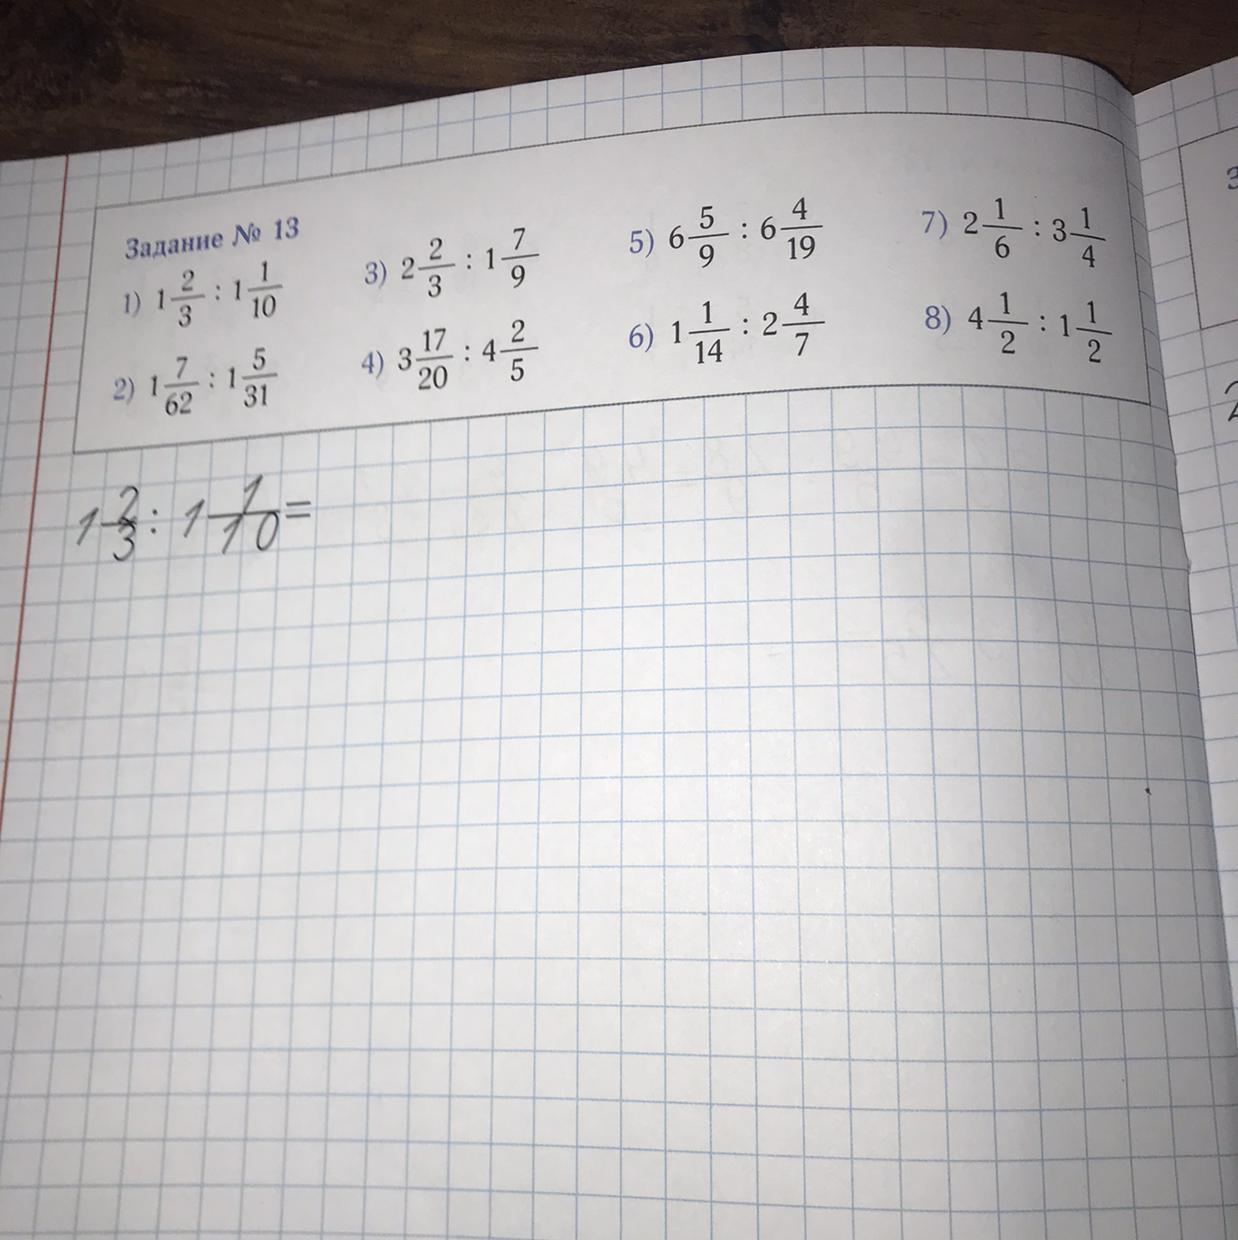 Задание № 13
1) 1 2/3 : 1 1/10
2) 1 7/62 : 1 5/31
3) 2 2/3 : 1 7/9
4) 3 17/20 : 4 2/5
5) 6 5/9 : 6 4/19
6) 1 1/14 : 2 4/7
7) 2 1/6 : 3 1/4
8) 4 1/2 : 1 1/2
1 2/3 : 1 1/10 =